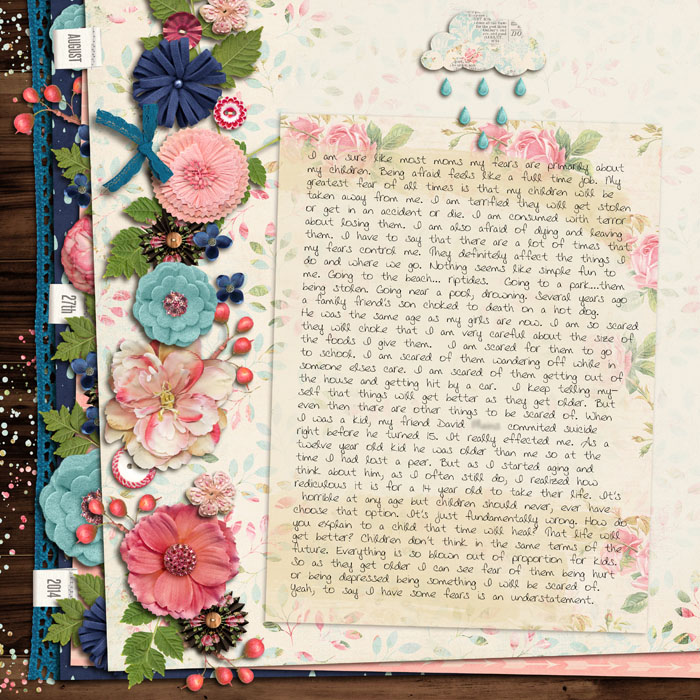 AUGUST
27th
2014
I am sure like most moms my fears are primarily about
my children. Being afraid feels like a full time job. My
greatest fear of all times is that my children will be
taken away from me. I am terrified they will get stolen
or get in an accident or die. I am consumed with terror
about losing them. I am also afraid of dying and leaving
them. I have to say that there are a lot of times that
my fears control me. They definitely affect the things I
do and where we go. Nothing seems like simple fun to
me. Going to the beach... riptides. Going to a park....them
being stolen. Going near a pool, drowning. Several years ago
a family friend's son choked to death on a hot dog.
He was the same age as my girls are now. I am so scared
they will choke that I am very careful about the size of
the foods I give them. I am scared for them to go
to school. I am scared of them wandering off while in
someone elses care. I am scared of them getting out of
the house and getting hit by a car. I keep telling my-
self that things will get better as they get older. But
even then there are other things to be scared of. When
I was a kid, my friend David commited suicide
right before he turned 15. It really effected me. As a
twelve year old kid he was older than me so at the
time I had lost a peer. But as I started aging and
think about him, as I often still do, I realized how
rediculous it is for a 14 year old to take ther life. It's
horrible at any age but children should never, ever have
choose that option. It's just fundamentally wrong. How do
you explain to a child that time will heal? That life will
get better? Children don't think in the same terms of the
future. Everything is so blown out of proportion for kids.
So as they get older I can see fear of them being hurt
or being depressed being something I will be scared of.
Yeah, to say I have some fears is an understatement.